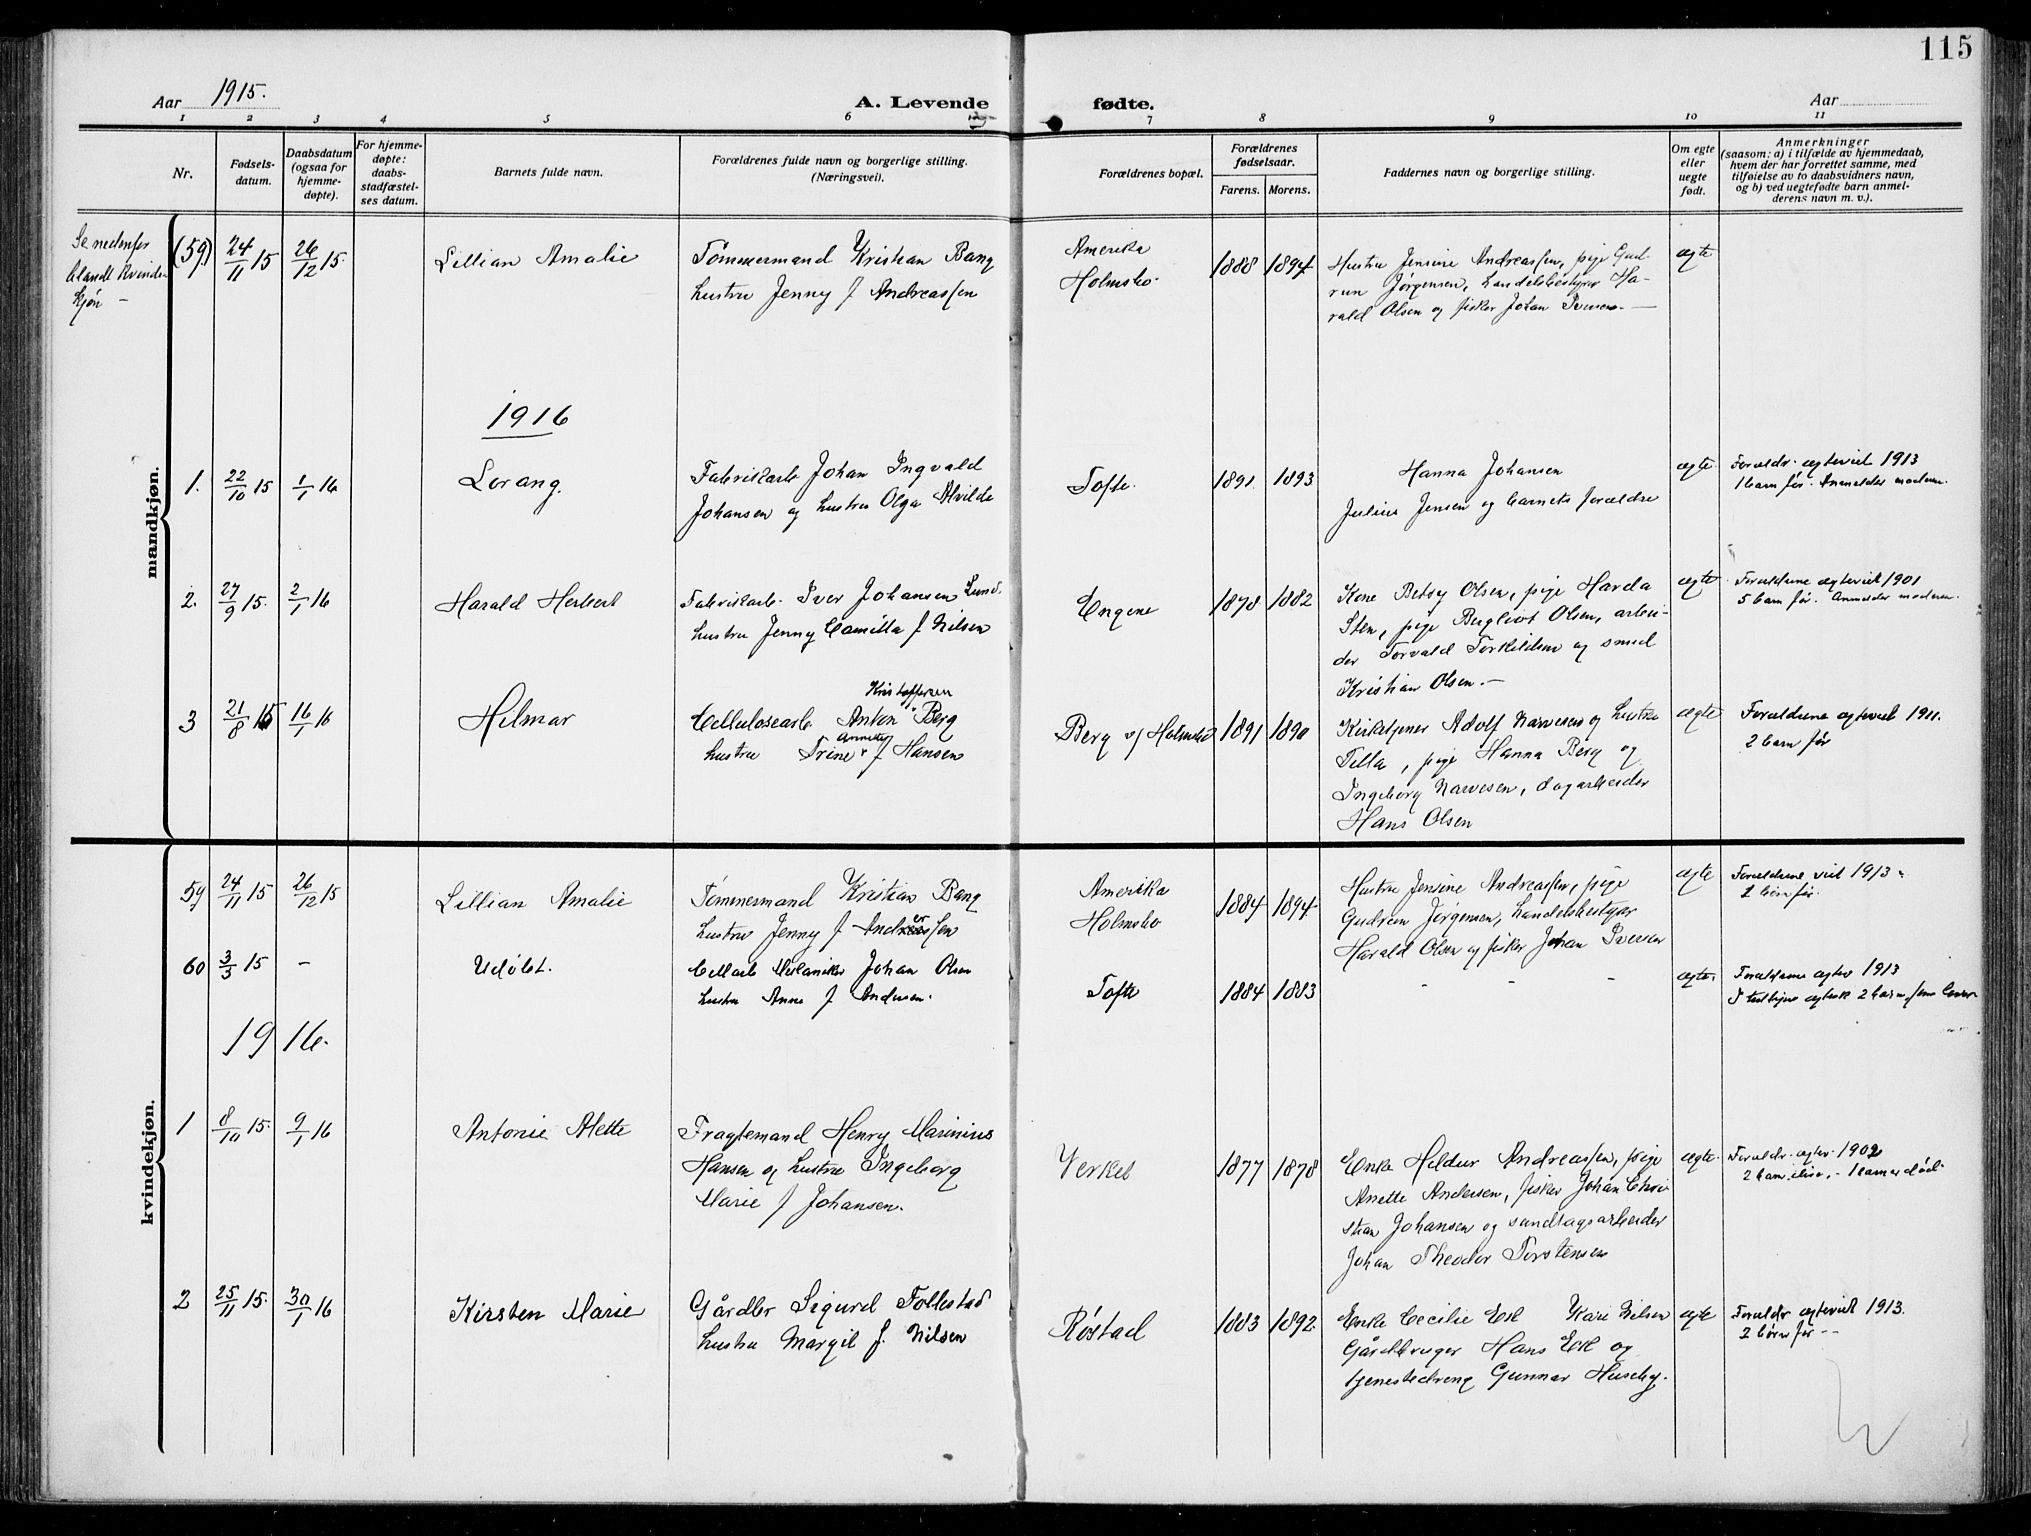 115
Aar 1915.
A. Levende fødte.
Aar
1 2 3 4 5 6 7 8 9 10 11
Nr.
Fødsels-
datum.
Daabsdatum
(ogsaa for
hjemme-
døpte).
For hjemme-
døpte:
daabs-
stadfæstel-
ses datum.
Barnets fulde navn.
Forældrenes fulde navn og borgerlige stilling.
(Næringsvei).
Forældrenes bopæl.
Forældrenes
fødselsaar.
Farens. Morens.
Faddernes navn og borgerlige stilling.
Om egte
eller
uegte
født.
Anmerkninger
(saasom: a) i tilfælde av hjemmedaab,
hvem der har forrettet samme, med
tilføielse av to daabsvidners navn,
og b) ved uegtefødte barn anmel-
derens navn m. v.).
mandkjøn.
Se nedenfor
blandt kvinde-
kjøn —
(59) 24/11 15 26/12 15.
Lillian Amalie
Tømmermand Kristian Bang
hustru Jenny f Andreassen
Amerika
Holmsbo.
1888 1894
Hustru Jensine Andreassen, pige Gud-
run Jørgensen, handelsbestyrer Ha-
rald Olsen og fisker Johan Iversen. —
ægte
1916
1. 22/10 15 1/1 16
Lorang.
Fabrikarb Johan Ingvald
Johansen og hustru Olga Alvilde
Tofte.
1891 1893
Hanna Johansen
Julius Jensen og barnets forældre
ægte
Forældr. egteviet 1913
1 barn før. Anmelder moderen.
2. 27/9 15. 2/1 16
Harald Herbert
Fabrikarb. Iver Johansen Lund.
hustru Jenny Camilla f Nilsen
Engene
1878 1882
Kone Betsy Olsen, pige Harda
Sten, pige Bergliot Olsen, arbei-
der Torvald Torkildsen og smed
Kristian Olsen. —
ægte
Forældrene egteviet 1901
5 barn før. Anmelder moderen.
3 21/8 15 16/1 16
Hilmar
Kristoffersen
Cellulosearb Anton Berg
Annette
hustru Trine f Hansen
Berg v/ Holmsbo
1891 1890
Kirketjener Adolf Narvesen og hustru
Tilla, pige Hanna Berg og
Ingeborg Narvesen, dagarbeider
Hans Olsen
ægte
Forældrene egteviet 1911.
2 barn før
kvindekjøn.
59 24/11 15 26/12 15
Lillian Amalie
Tømmermand Kristian Bang
hustru Jenny f Andreassen
Amerika
Holmsbo
1884 1894
Hustru Jensine Andreassen, pige
Gudrun Jørgensen, handelsbestyrer
Harald Olsen og fisker Johan Iversen
ægte
Forældrene viet 1913
60 3/3 15 –
Udøbt.
Cellarb Mekaniker Johan Olsen
hustru Anna f Andersen.
Tofte
1884 1883
- - -
ægte.
Forældrene egtev 1913
1916.
1 8/10 15. 9/1 16
Antonie Alette
Fragtemand Henry Marinius
Hansen og hustru Ingeborg
Marie f Johansen.
Verket
1877 1878
Enke Hildur Andreassen, pige
Anette Andersen, fisker Johan Chri-
stian Johansen og sandtagsarbeider
Johan Theodor Torstensen
ægte.
Forældr. egtev. 1902
2 barn ilive. — 1 barn er død.
2 25/11 15. 30/1 16
Kirsten Marie
Gårdbr Sigurd Follestad
hustru Margit f. Nilsen
Røstad
1883 1892
Enke Cecilie Ek Kari Nilsen
Gårdbruger Hans Ek og
tjenestedreng Gunnar Huseby.
ægte
Forældr egteviet 1913.
2 børn før —